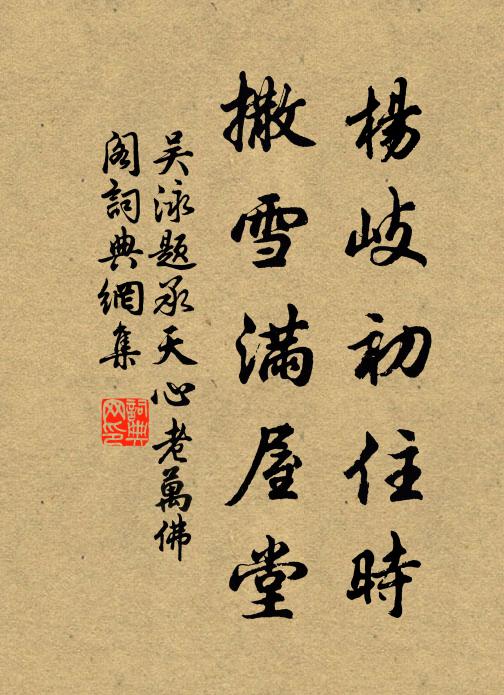 楊岐初住時
撒雪滿屋堂
吴泳題承天心老萬佛
閣詞典網集
詞典网印